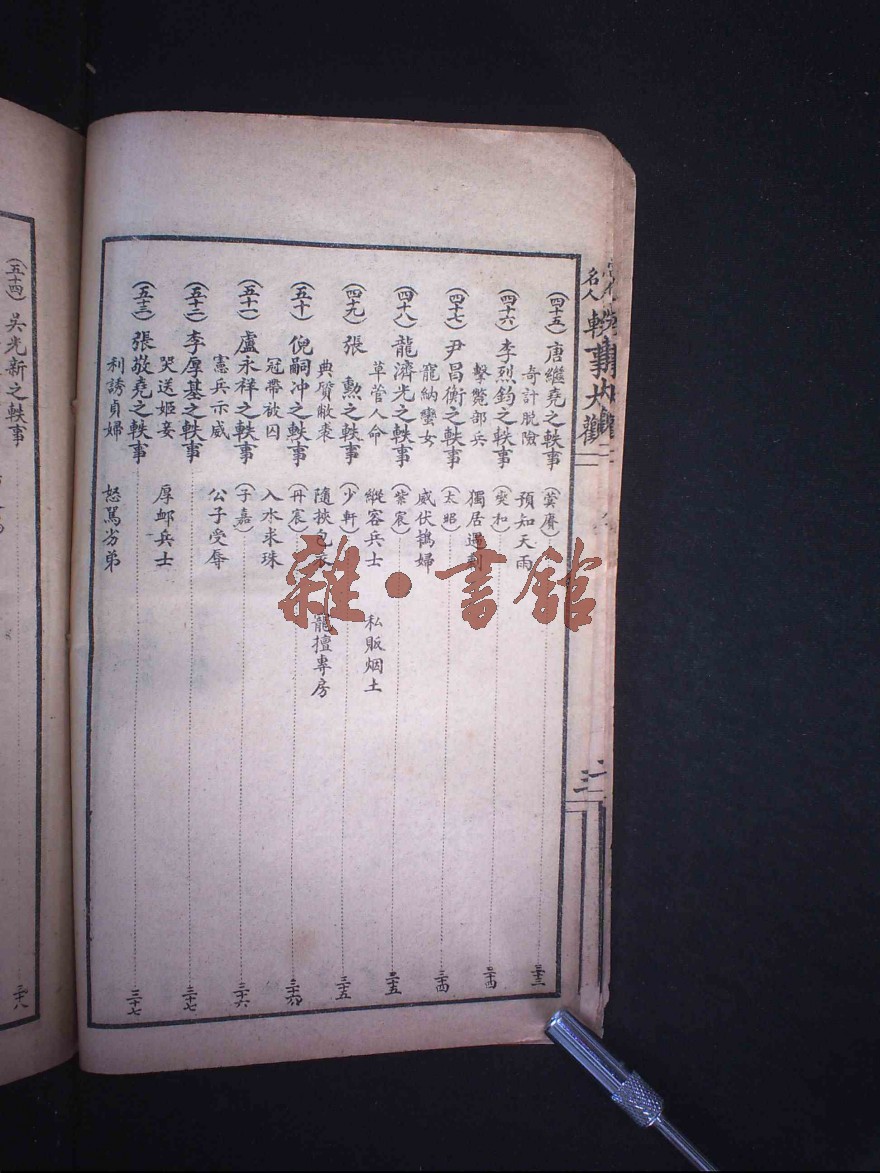 名人軼事大觀
(四十五)唐繼堯之軼事(蓂賡)三十三
奇計脫險 預知天雨
(四十六)李烈鈞之軼事(爽和)三十四
擊斃部兵 獨居遇刺
(四十七)尹昌衡之軼事(太昭)三十四
寵納蠻女 威伏鴆婦
(四十八)龍濟光之軼事(紫宸)三十五
草菅人命 縱容兵士 私販烟土
(四十九)張 勲之軼事(少軒)三十五
典質敝裘 隨挾包衣 寵擅專房
(五十)倪嗣冲之軼事(丹宸)三十六
冠帶放囚 入水求珠
(五十一)盧永祥之軼事(子嘉)三十六
憲兵示威 公子受辱
(五十二)李厚基之軼事 三十七
哭送姬妾 厚卹兵士
(五十三)張敬堯之軼事 三十七
利誘貞婦 怒罵劣弟
(五十四)吳光新之軼事 三十八
雜·書館